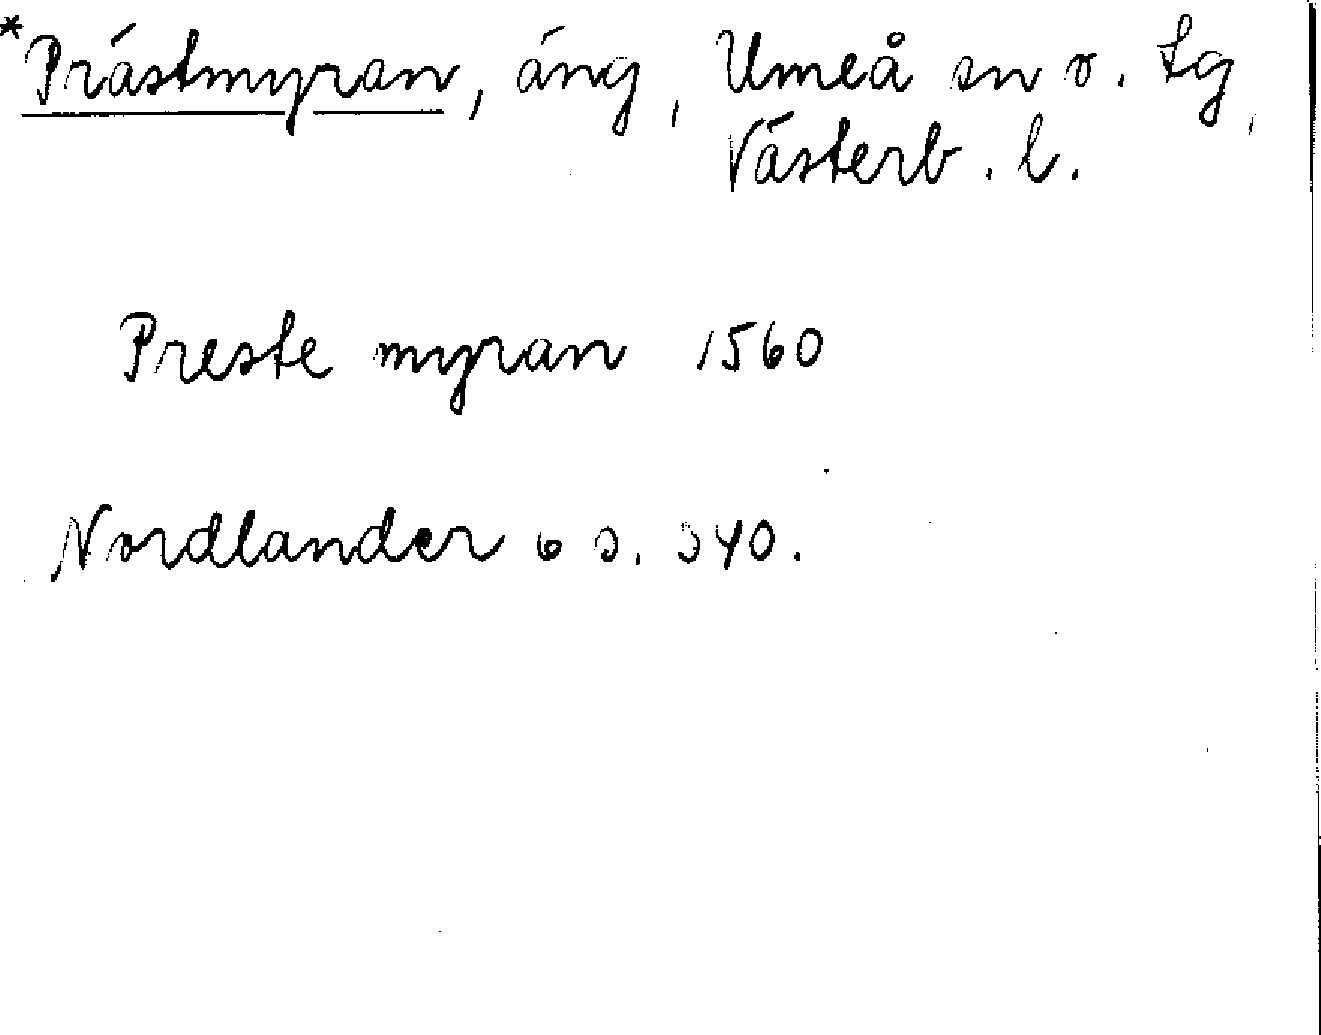 *Prästmyran, äng, Umeå sn o. tg,
Västerb. l.
Preste myran 1560
Nordlander 6 s. 340.